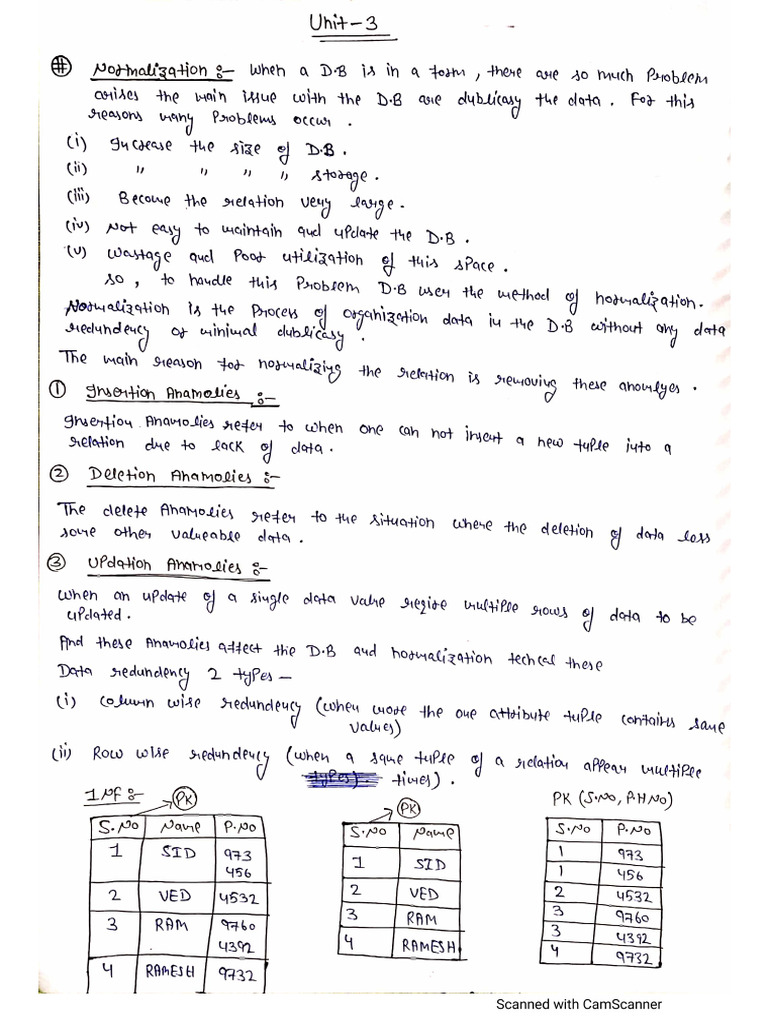 Unit-3
# Normalization :- When a D.B is in a form, there are so much Problem
arises the main issue with the D.B are dublicasy the data. For this
reasons many Problems occur.
(i) Increase the size of D.B.
(ii) " " " " storage.
(iii) Become the relation very large.
(iv) Not easy to maintain and update the D.B.
(v) Wastage and Poor utilization of this space.
so, to handle this Problem D.B user the method of normalization.
Normalization is the Process of organization data in the D.B without any data
redundency or minimal dublicasy.
The main reason for normalizing the relation is removing these anomlyes.
① Insertion Anamolies :-
Insertion Anamolies refer to when one can not insert a new tuple into a
relation due to lack of data.
② Deletion Anamolies :-
The delete Anamolies refer to the situation where the deletion of data loss
some other valueable data.
③ Updation Anamolies :-
When an update of a single data value regire multiple rows of data to be
updated.
And these Anamolies affect the D.B and normalization techcal these
Data redundency 2 types -
(i) Column wise redundency (when more the one attribute tuple contains same
values)
(ii) Row wise redundency (when a same tuple of a relation appear multiple
times).
1NF :- PK
S.No Name P.No
1 SID 973
456
2 VED 4532
3 RAM 9760
4392
4 RAMESH 9732
PK
S.No Name
1 SID
2 VED
3 RAM
4 RAMESH
PK (S.NO, P.H NO)
S.No P.No
1 973
1 456
2 4532
3 9760
3 4392
4 9732
Scanned with CamScanner